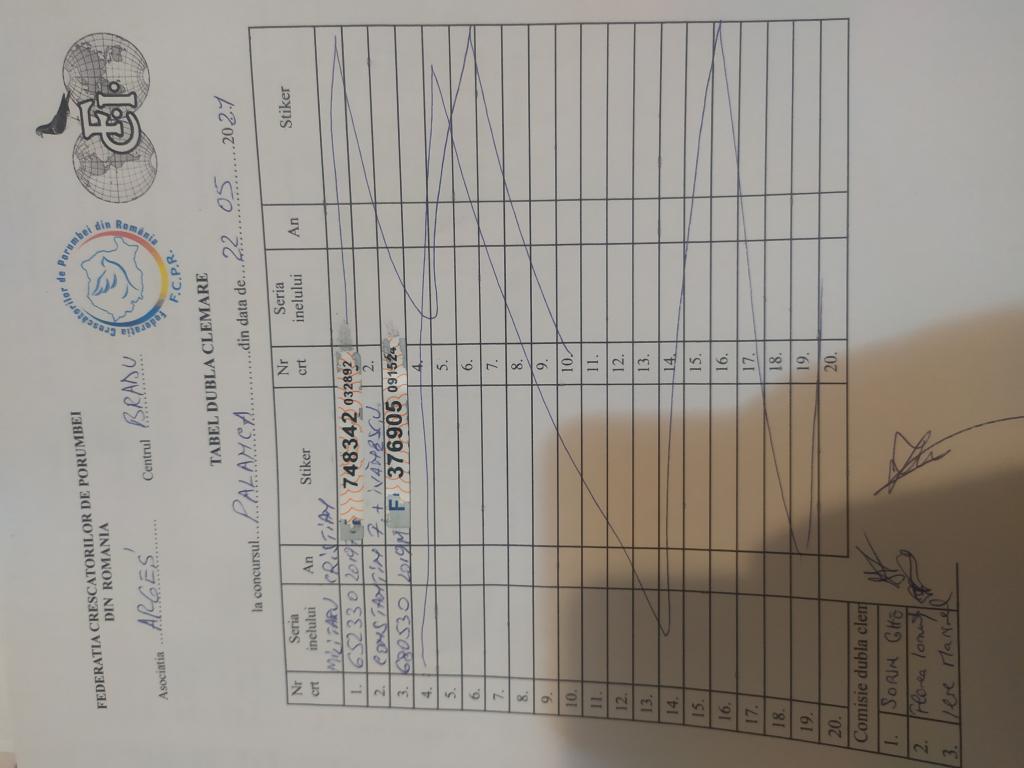 FEDERATIA CRESCATORILOR DE PORUMBEI
DIN ROMANIA
Federatia Crescătorilor de Porumbei din România
F.C.P.R.
Asociatia ARGES Centrul BRADU
TABEL DUBLA CLEMARE
la concursul PALANCA din data de 22 05 2021
Nr crt Seria inelului An Stiker Nr crt Seria inelului An Stiker
MILITARU CRISTIAN
1. 652330 2019 748342 032892
2. CONSTANTIN 2.
3. 680530 2019M F 376905 091524
4. 4.
5. 5.
6. 6.
7. 7.
8. 8.
9. 9.
10. 10.
11. 11.
12. 12.
13. 13.
14. 14.
15. 15.
16. 16.
17. 17.
18. 18.
19. 19.
20. 20.
Comisie dubla clem
1. SORIN GHE
2. Florea Ionuț
3.